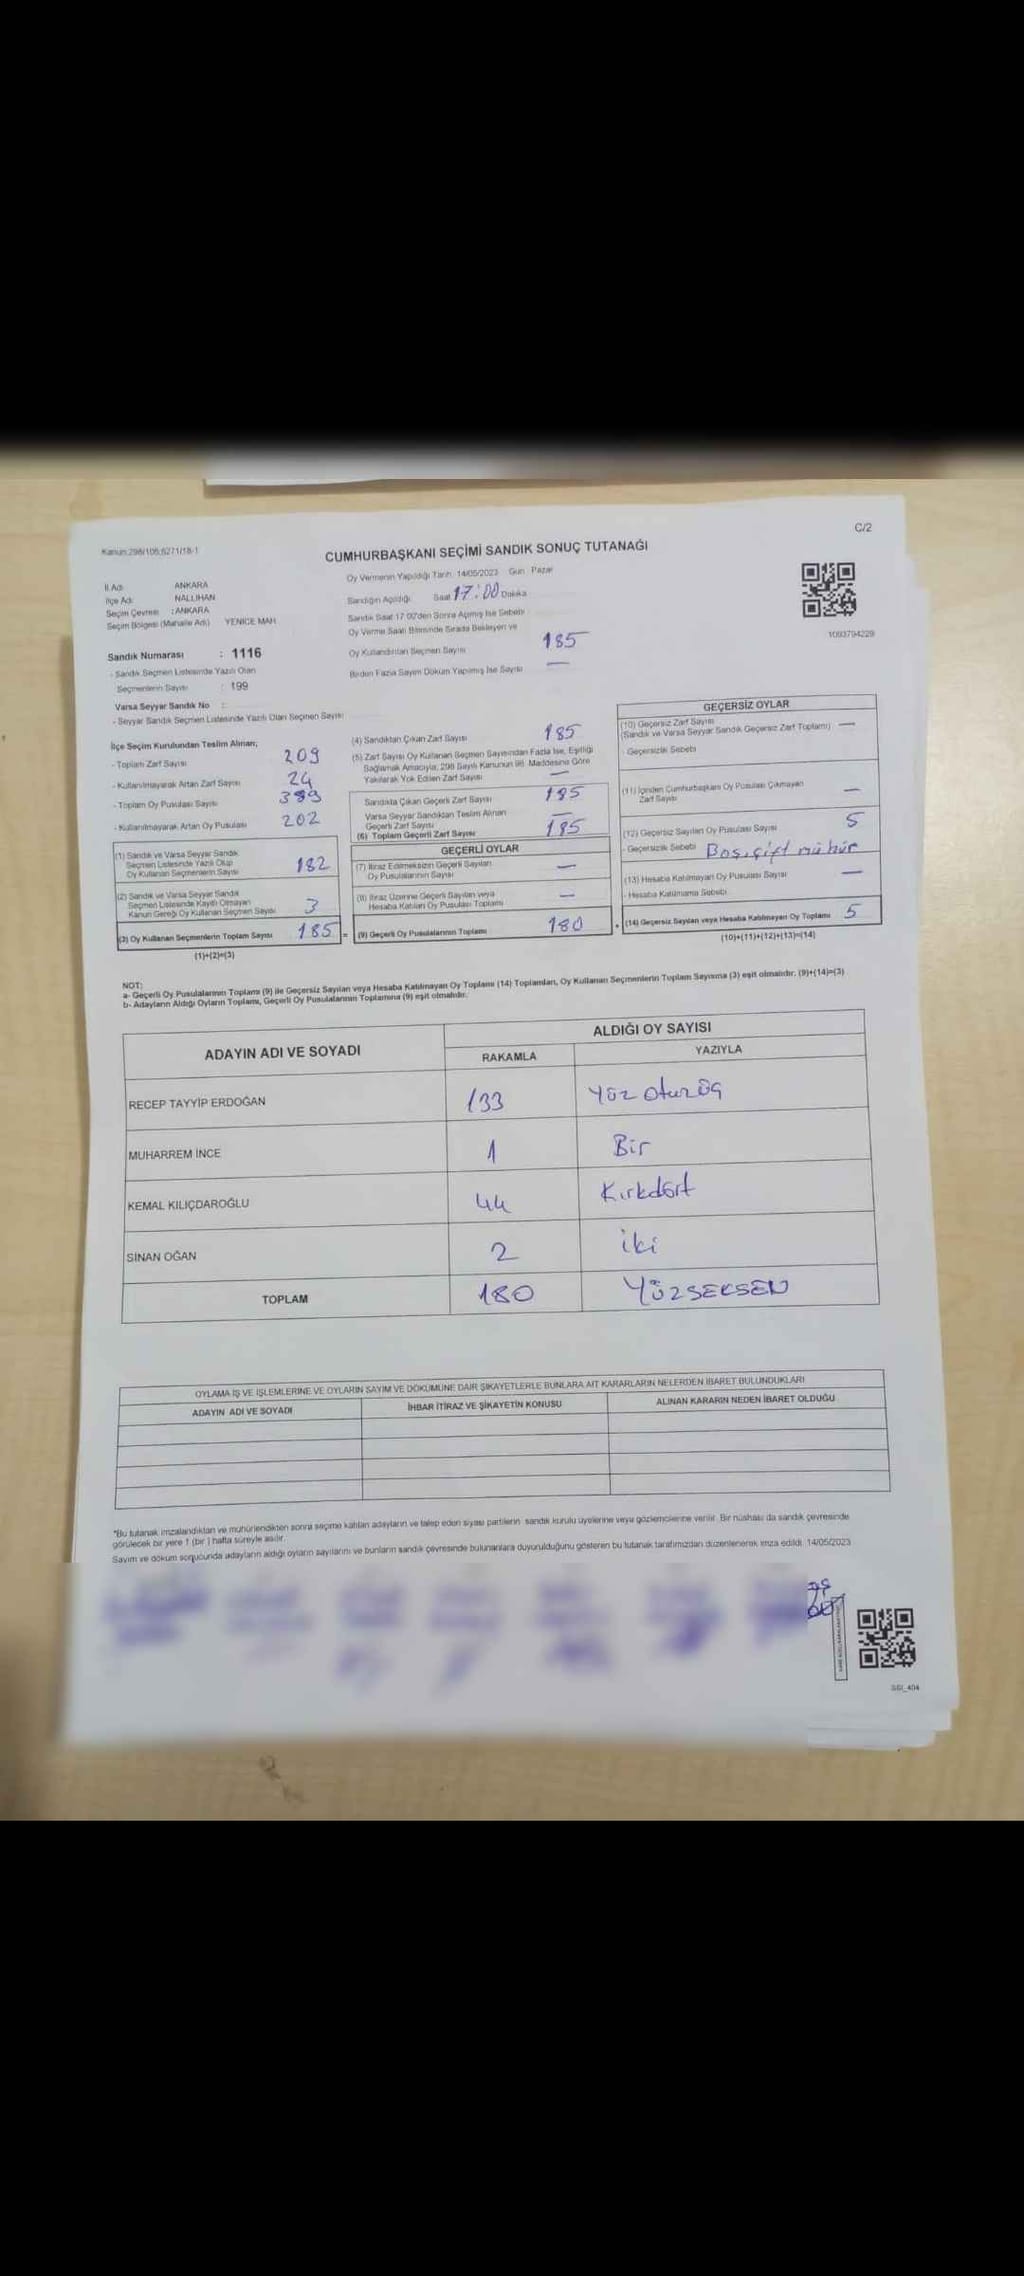 C/2
Kanun:298/105,6271/18-1
CUMHURBAŞKANI SEÇİMİ SANDIK SONUÇ TUTANAĞI
İl Adı ANKARA
İlçe Adı NALLIHAN
Seçim Çevresi : ANKARA
Seçim Bölgesi (Mahalle Adı) YENİCE MAH.
Oy Vermenin Yapıldığı Tarih 14/05/2023 Gün Pazar
Sandığın Açıldığı Saat 17:00 Dakika
Sandık Saat 17.00'den Sonra Açılmış İse Sebebi
Oy Verme Saati Bitiminde Sırada Bekleyen ve
Oy Kullandırılan Seçmen Sayısı 185
Birden Fazla Sayım Döküm Yapılmış İse Sayısı —
1093794229
Sandık Numarası : 1116
- Sandık Seçmen Listesinde Yazılı Olan
Seçmenlerin Sayısı : 199
Varsa Seyyar Sandık No :
- Seyyar Sandık Seçmen Listesinde Yazılı Olan Seçmen Sayısı
İlçe Seçim Kurulundan Teslim Alınan;
- Toplam Zarf Sayısı 209
- Kullanılmayarak Artan Zarf Sayısı 24
- Toplam Oy Pusulası Sayısı 389
- Kullanılmayarak Artan Oy Pusulası 202
(1) Sandık ve Varsa Seyyar Sandık
Seçmen Listesinde Yazılı Olup
Oy Kullanan Seçmenlerin Sayısı 182
(2) Sandık ve Varsa Seyyar Sandık
Seçmen Listesinde Kayıtlı Olmayan
Kanun Gereği Oy Kullanan Seçmen Sayısı 3
(3) Oy Kullanan Seçmenlerin Toplam Sayısı 185 =
(1)+(2)=(3)
(4) Sandıktan Çıkan Zarf Sayısı 185
(5) Zarf Sayısı Oy Kullanan Seçmen Sayısından Fazla İse, Eşitliği
Sağlamak Amacıyla, 298 Sayılı Kanunun 98. Maddesine Göre
Yakılarak Yok Edilen Zarf Sayısı —
Sandıkta Çıkan Geçerli Zarf Sayısı 185
Varsa Seyyar Sandıktan Teslim Alınan
Geçerli Zarf Sayısı —
(6) Toplam Geçerli Zarf Sayısı 185
GEÇERLİ OYLAR
(7) İtiraz Edilmeksizin Geçerli Sayılan
Oy Pusulalarının Sayısı —
(8) İtiraz Üzerine Geçerli Sayılan veya
Hesaba Katılan Oy Pusulası Toplamı —
(9) Geçerli Oy Pusulalarının Toplamı 180 +
GEÇERSİZ OYLAR
(10) Geçersiz Zarf Sayısı
(Sandık ve Varsa Seyyar Sandık Geçersiz Zarf Toplamı) —
- Geçersizlik Sebebi
(11) İçinden Cumhurbaşkanı Oy Pusulası Çıkmayan
Zarf Sayısı —
(12) Geçersiz Sayılan Oy Pusulası Sayısı 5
- Geçersizlik Sebebi Boş, çift mühür
(13) Hesaba Katılmayan Oy Pusulası Sayısı —
- Hesaba Katılmama Sebebi
(14) Geçersiz Sayılan veya Hesaba Katılmayan Oy Toplamı 5
(10)+(11)+(12)+(13)=(14)
NOT:
a- Geçerli Oy Pusulalarının Toplamı (9) ile Geçersiz Sayılan veya Hesaba Katılmayan Oy Toplamı (14) Toplamları, Oy Kullanan Seçmenlerin Toplam Sayısına (3) eşit olmalıdır. (9)+(14)=(3)
b- Adayların Aldığı Oyların Toplamı, Geçerli Oy Pusulalarının Toplamına (9) eşit olmalıdır.
ADAYIN ADI VE SOYADI
ALDIĞI OY SAYISI
RAKAMLA YAZIYLA
RECEP TAYYİP ERDOĞAN 133 Yüz Otuz üç
MUHARREM İNCE 1 Bir
KEMAL KILIÇDAROĞLU 44 Kırkdört
SİNAN OĞAN 2 iki
TOPLAM 180 YÜZSEKSEN
OYLAMA İŞ VE İŞLEMLERİNE VE OYLARIN SAYIM VE DÖKÜMÜNE DAİR ŞİKAYETLERLE BUNLARA AİT KARARLARIN NELERDEN İBARET BULUNDUKLARI
ADAYIN ADI VE SOYADI İHBAR İTİRAZ VE ŞİKAYETİN KONUSU ALINAN KARARIN NEDEN İBARET OLDUĞU
"Bu tutanak imzalandıktan ve mühürlendikten sonra seçime katılan adayların ve talep eden siyasi partilerin sandık kurulu üyelerine veya gözlemcilerine verilir. Bir nüshası da sandık çevresinde
görülecek bir yere 1 (bir) hafta süreyle asılır.
Sayım ve döküm sonucunda adayların aldığı oyların sayılarını ve bunların sandık çevresinde bulunanlara duyurulduğunu gösteren bu tutanak tarafımızdan düzenlenerek imza edildi. 14/05/2023